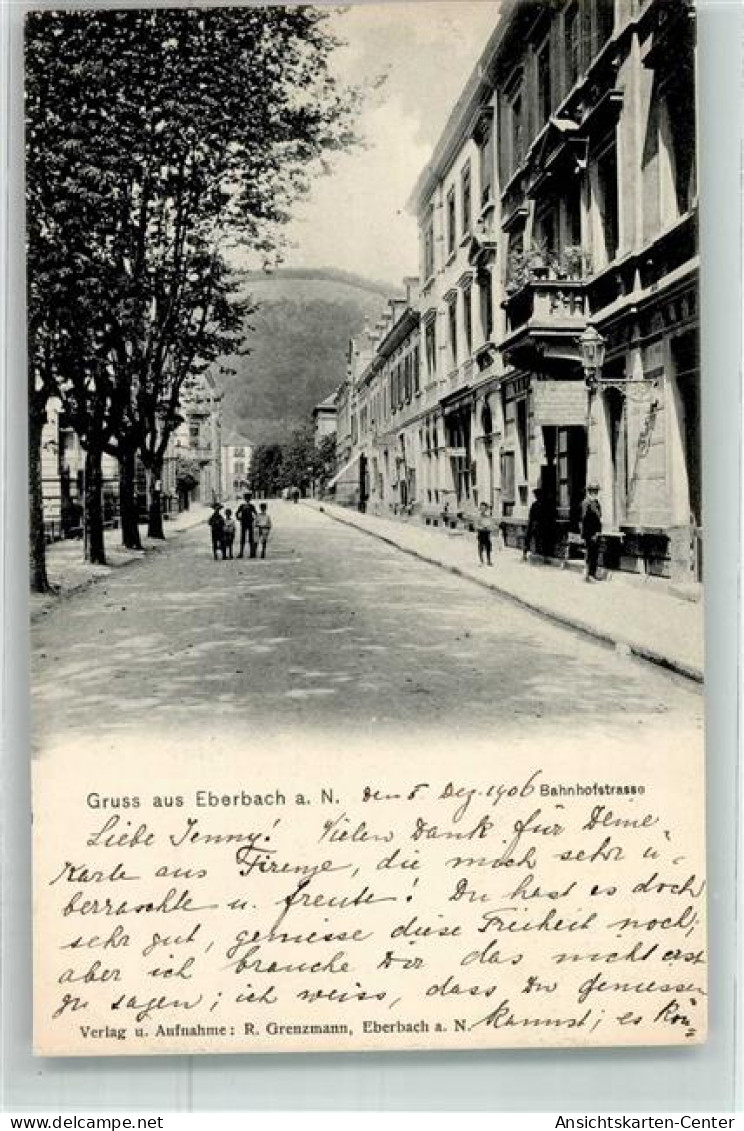 Gruss aus Eberbach a. N. den 5. Dez. 1906 Bahnhofstrasse
Liebe Jenny! Vielen Dank für Deine
Karte aus Firenze, die mich sehr ü-
berraschte u. freute! Du hast es doch
sehr gut, geniesse diese Freiheit noch;
aber ich brauche Dir das nicht erst
zu sagen; ich weiss, dass Du geniessen
Verlag u. Aufnahme: R. Grenzmann, Eberbach a. N. kannst; es kön=
delcampe.net
Ansichtskarten-Center